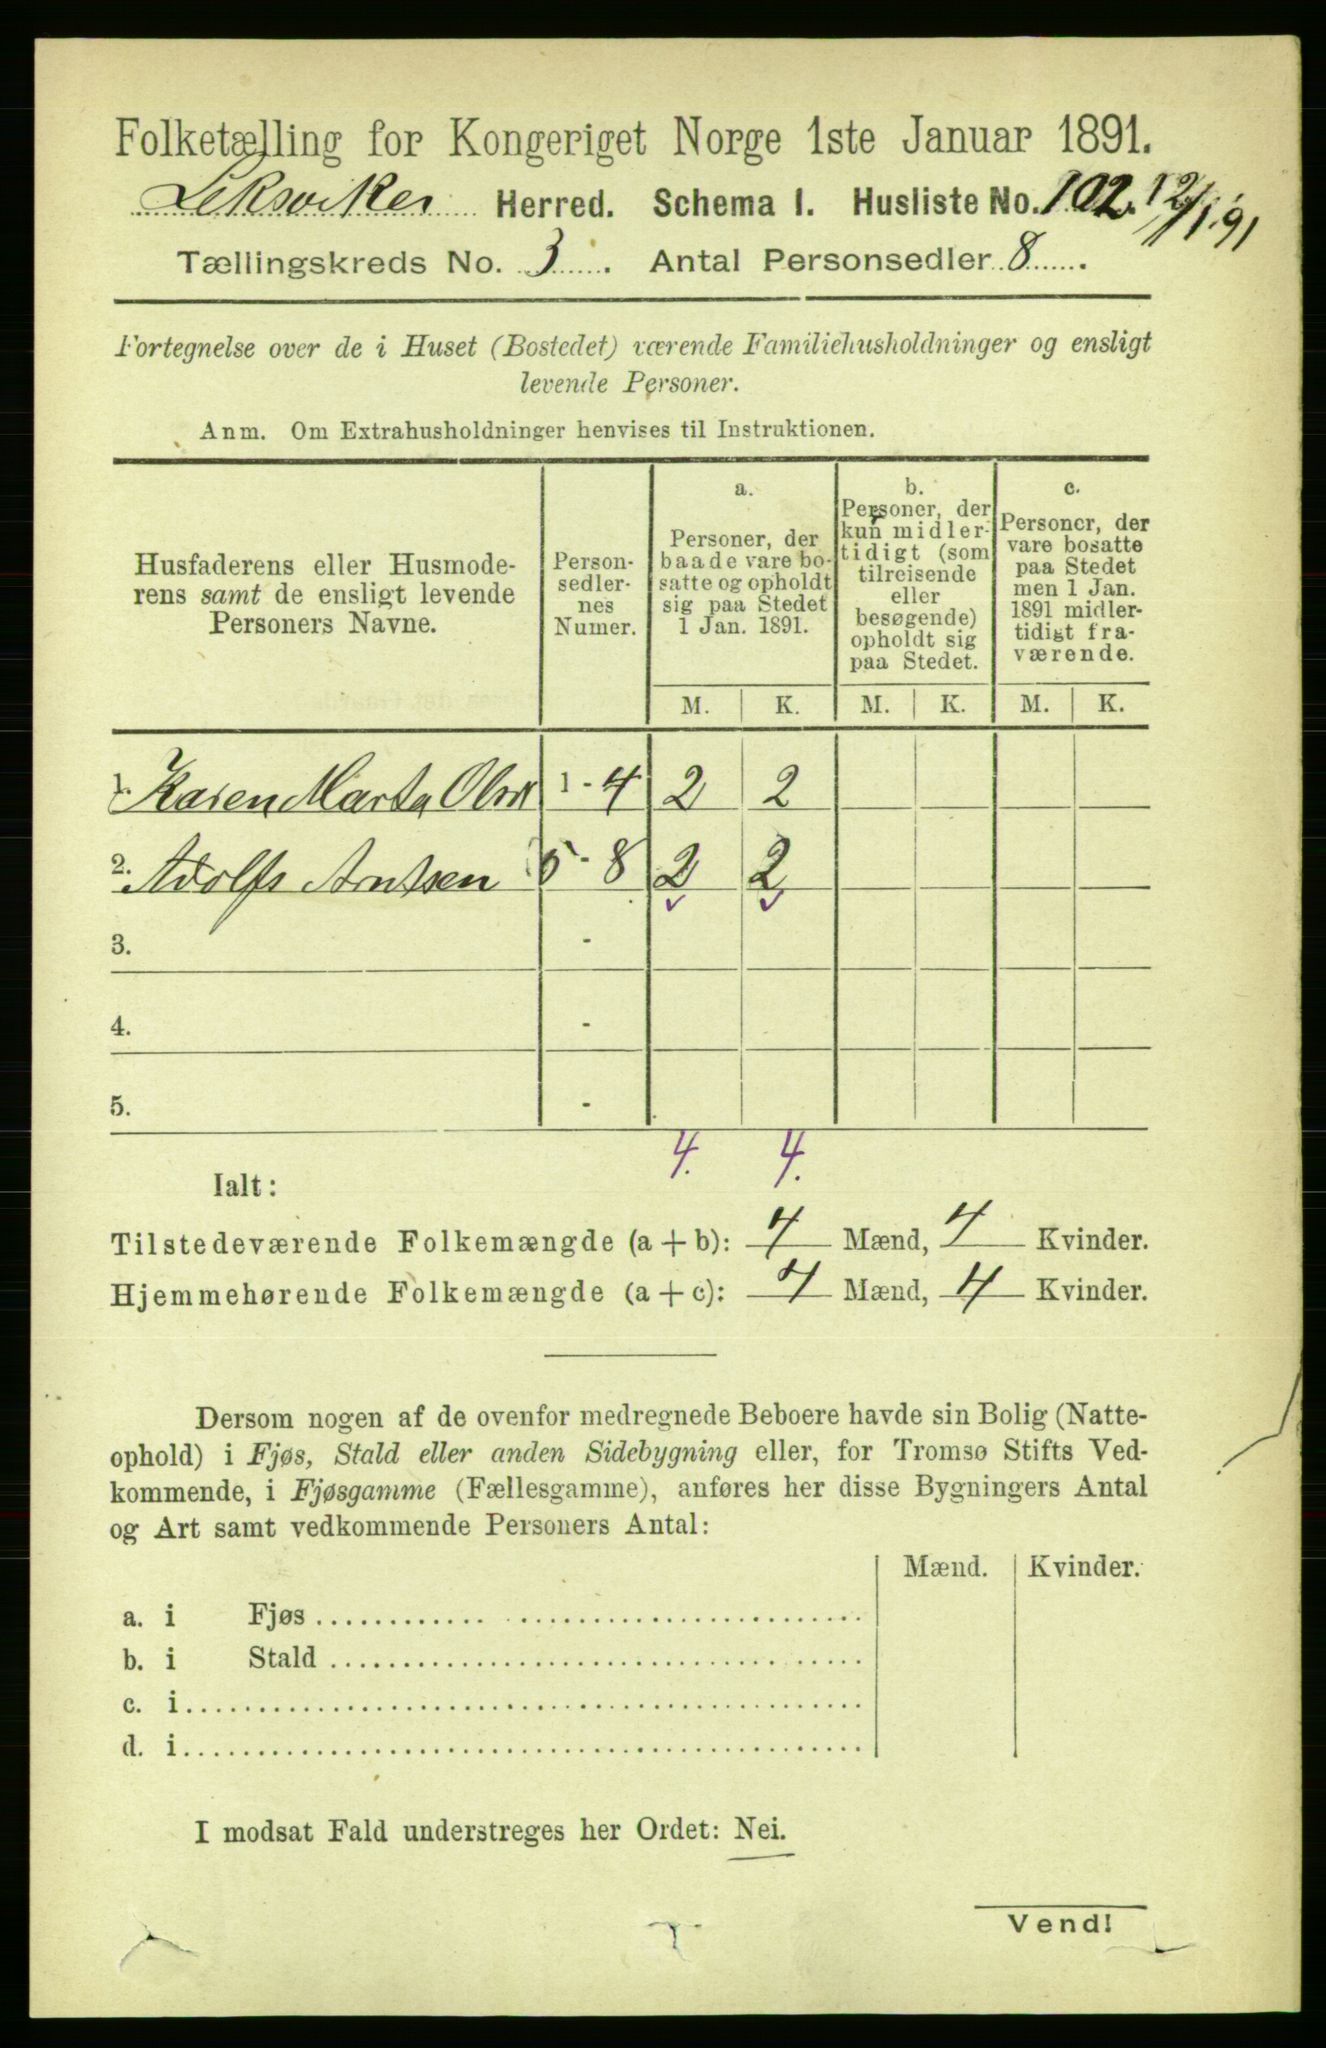 Folketælling for Kongeriget Norge 1ste Januar 1891.
Leksviken Herred. Schema I. Husliste No. 102. 12/1 91
Tællingskreds No. 3. Antal Personsedler 8.
Fortegnelse over de i Huset (Bostedet) værende Familiehusholdninger og ensligt
levende Personer.
Anm. Om Extrahusholdninger henvises til Instruktionen.
Husfaderens eller Husmode-
rens samt de ensligt levende
Personers Navne.
Person-
sedler-
nes
Numer.
a.
Personer, der
baade vare bo-
satte og opholdt
sig paa Stedet
1 Jan. 1891.
b.
Personer, der
kun midler-
tidigt (som
tilreisende
eller
besøgende)
opholdt sig
paa Stedet.
c.
Personer, der
vare bosatte
paa Stedet
men 1 Jan.
1891 midler-
tidigt fra-
værende.
M. K. M. K. M. K.
1. Karen Marta 1 - 4 2 2
2. Adolfs Arntsen 5 - 8 2 2
3. -
4. -
5. -
4. 4.
Ialt:
Tilstedeværende Folkemængde (a + b): 4 Mænd, 4 Kvinder.
Hjemmehørende Folkemængde (a + c): 4 Mænd, 4 Kvinder.
Dersom nogen af de ovenfor medregnede Beboere havde sin Bolig (Natte-
ophold) i Fjøs, Stald eller anden Sidebygning eller, for Tromsø Stifts Ved-
kommende, i Fjøsgamme (Fællesgamme), anføres her disse Bygningers Antal
og Art samt vedkommende Personers Antal:
Mænd. Kvinder.
a. i Fjøs
b. i Stald
c. i
d. i
I modsat Fald understreges her Ordet: Nei.
Vend!